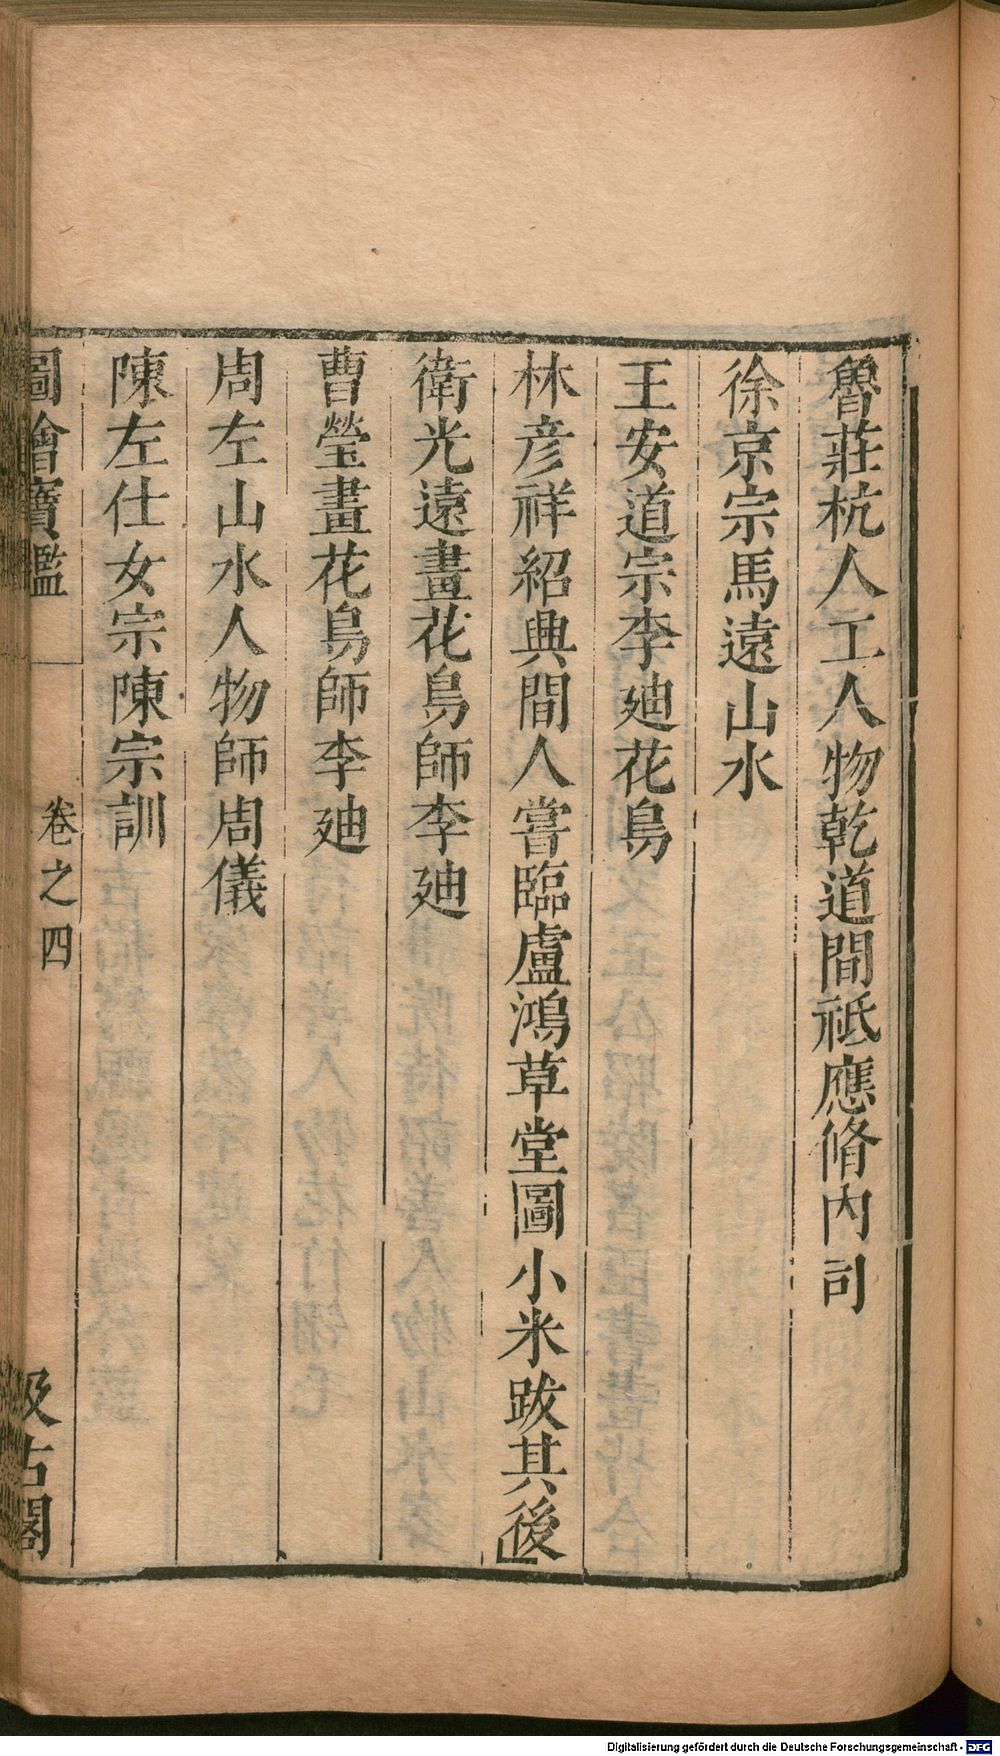 魯莊杭人工人物乾道間祗應脩內司
徐京宗馬遠山水
王安道宗李廸花鳥
林彦祥紹興間人嘗臨盧鴻草堂圖小米跋其後
衛光遠畫花鳥師李廸
曹瑩畫花鳥師李廸
周左山水人物師周儀
陳左仕女宗陳宗訓
圖繪寶鑑 卷之四 汲古閣
Digitalisierung gefördert durch die Deutsche Forschungsgemeinschaft - DFG